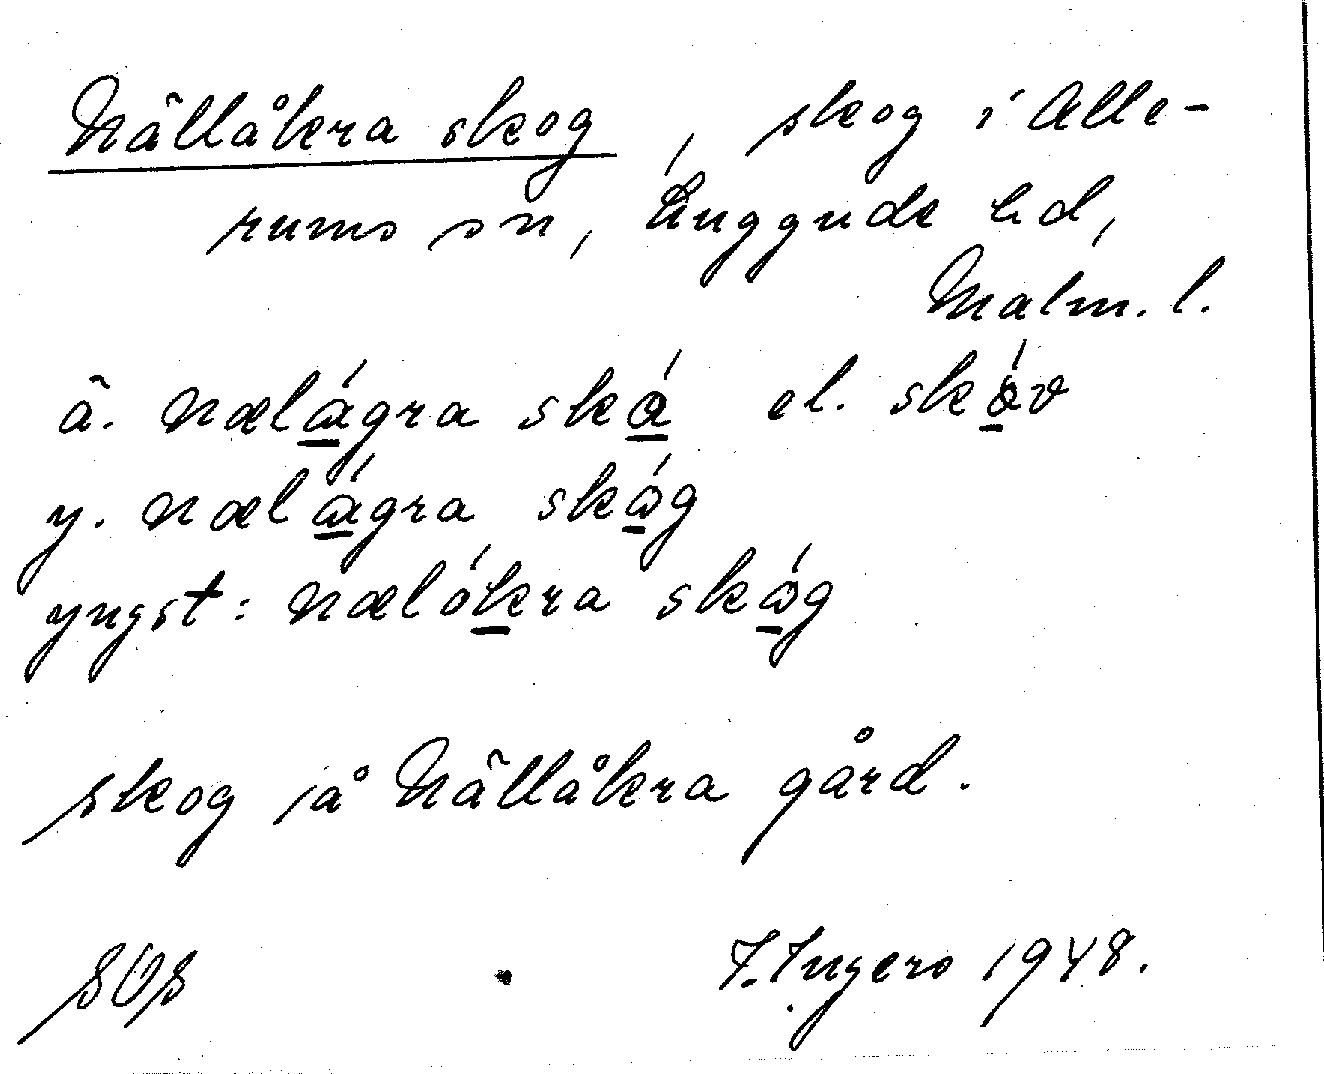 Nällåkra skog, skog i Alle-
rums sn, Luggude hd,
Malm. l.
ä. nælágra ská el. skóv
y. nælágra skåg
yngst: nælókra skåg
skog på Nällåkra gård.
SOS I. Ingers 1948.